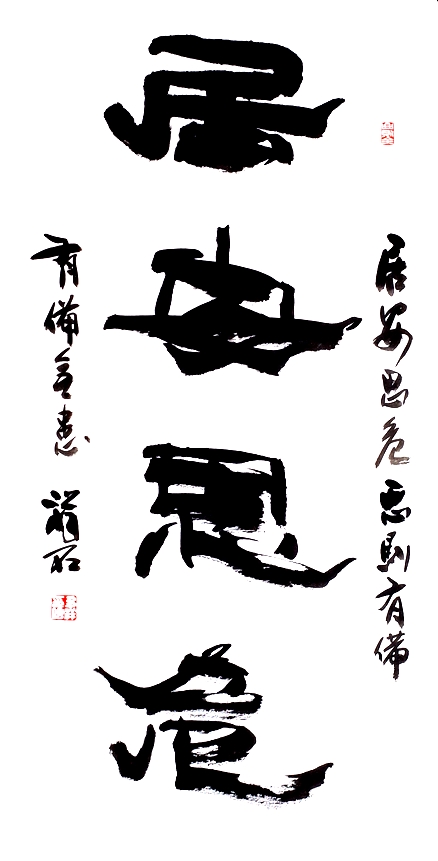 居安思危
居安思危思則有備
有備無患